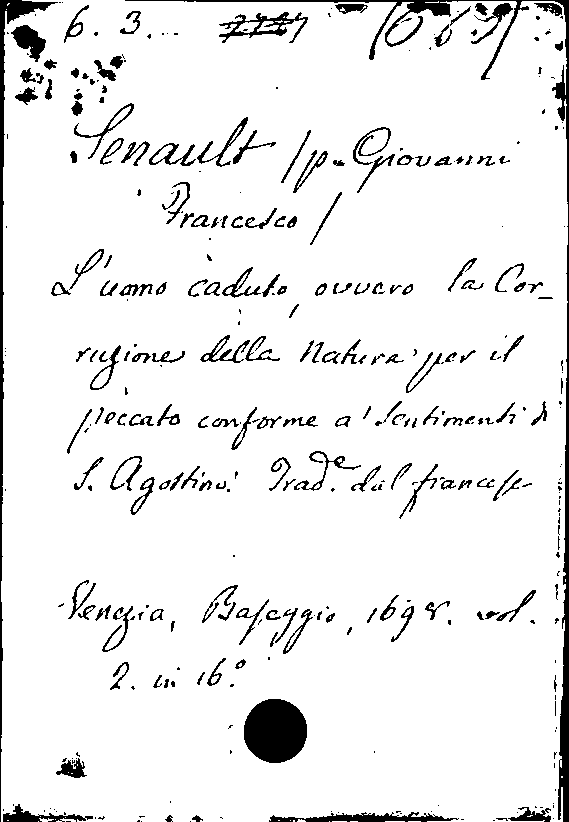 6. 3...
Senault /p. Giovanni
Francesco /
L'uomo caduto, ovvero la Cor-
ruzione della Natura per il
peccato conforme a' sentimenti di
S. Agostino. Trad.e dal francese
Venezia, Baseggio, 1698. vol.
2. in 16.o